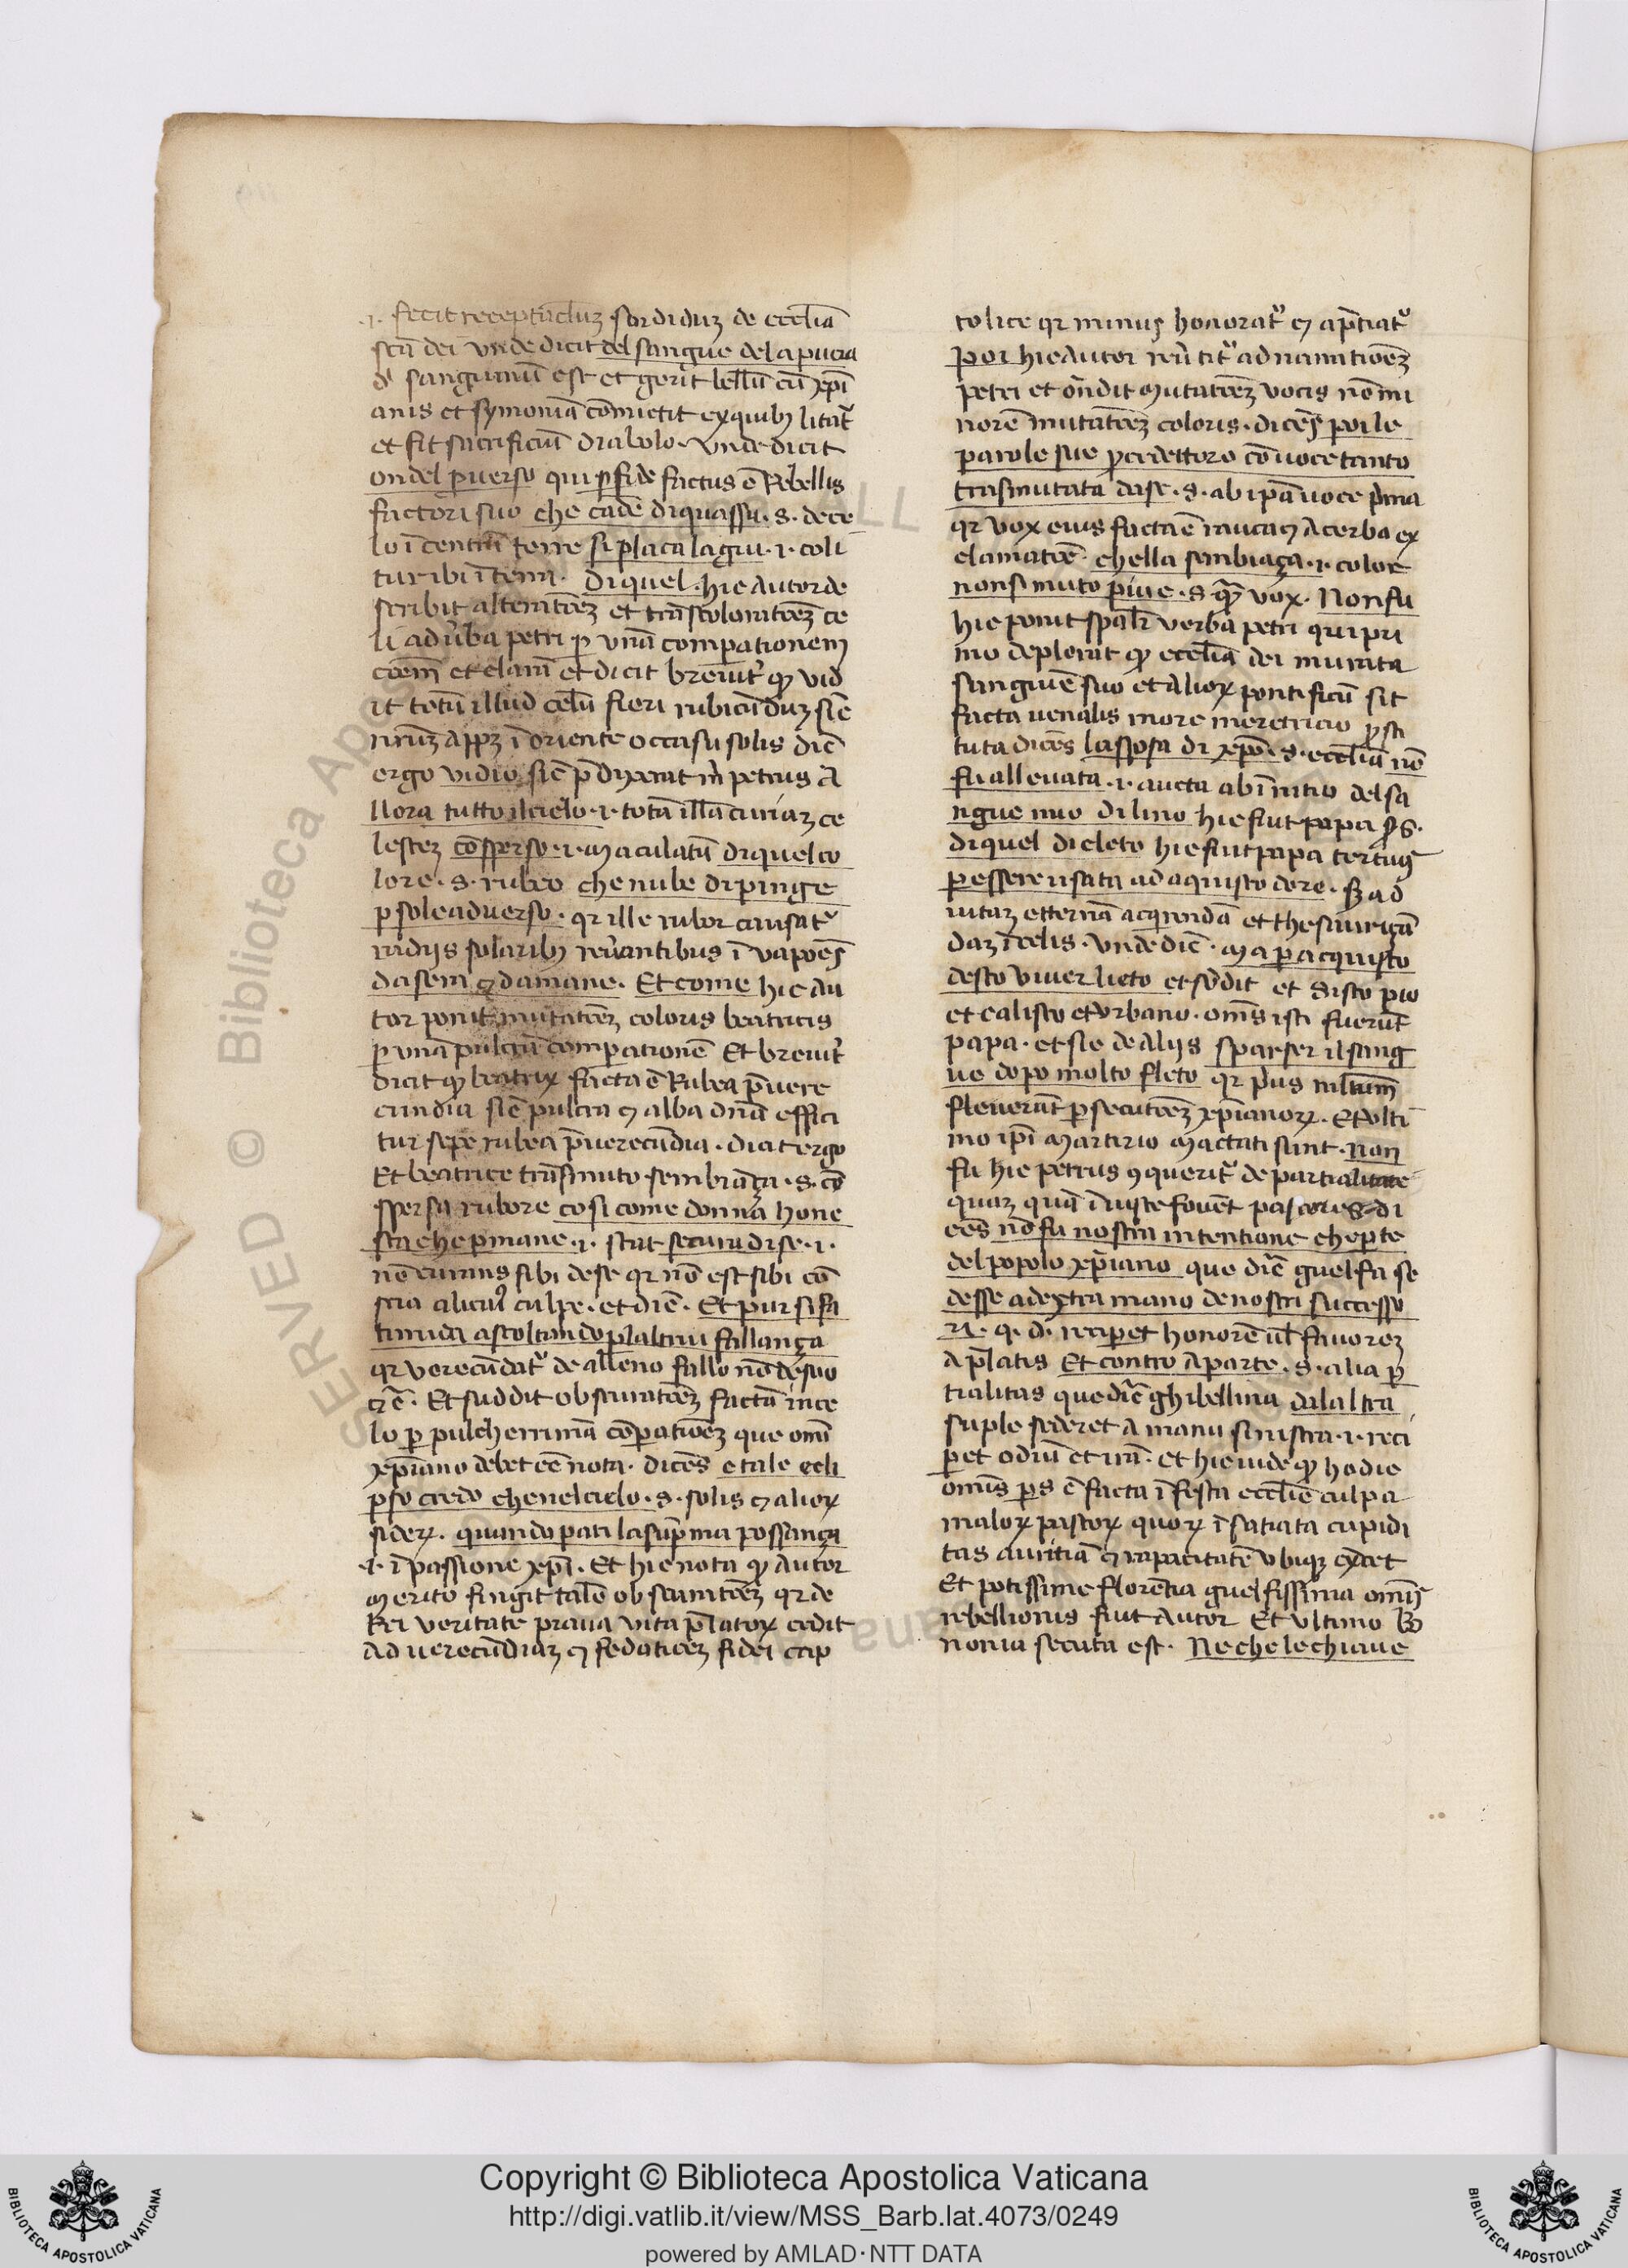 .i. fecit receptaclm̄ sordidūꝫ de eccl̄ia
sc̄a dei vnde dicit del sangue de la puçça
qꝛ sanguinū est et gerit bellū cū xp̄i
anis et symoniā cōmictit ex quibꝫ litat᷑
et fit sacrificiū diabolo. vnde dicit
ondel ꝑuerso qui ꝑfide factus ē Rebellis
factori suo che cadē di quassu. s. de ce
lo ī centrū terre si placa lagiu. i. coli
tur ibi ī terra. Di quel. hic autor de
scribit alteratōeꝫ et trāscoloratōeꝫ ce
li ad v̓ba petri ꝑ vnā compationem
cōem̄ et claraꝫ et dicit breuit᷑ ꝙ vid
it totū illud celū fieri rubicūduꝫ sic̄
nūꝫ appꝫ ī oriente occasu solis dic̄
ergo vidio sic̄ p̄dixerat m̓ petrus A
llora tutto il cielo. i. totā illā curiaꝫ ce
lesteꝫ cōsperso. i. maculatū di quel co
lore. s. rubeo che nube dipinge
ꝑ sole aduerso. qꝛ ille rubor causat᷑
radijs solaribꝫ rev̓antibus ī vapoēs
da sera ⁊ da mane. Et come hic au
tor ponit mutatōeꝫ coloris beatricis
ꝑ vnā pulcrā compationē Et breuit᷑
dicit ꝙ beatrix facta ē Rubea p̄ vere
cundia sic̄ pulcra ⁊ alba dn̄a effici
tur sepe rubea p̄ uerecūdia. dicit ergo
Et beatrice trāsmuto sembiāça. s. cō
spersa rubore cosi come donna hone
sta che ꝑmane. i. stat secura di se. i.
nō timens sibi de se qꝛ nō est sibi cō
scia alicuiꝰ culpe. et dic̄. Et pur si fa
timida ascoltando ꝑ laltrui fallança
qꝛ verecūdat᷑ de alieno fallo nō de suo
c̄. Et suddit obscuratōeꝫ factā in ce
lo ꝑ pulcherrimā cōpatiōeꝫ que omī
xp̄iano debet eē nota. dicēs e tale ecli
pso credo che nel cielo. s. solis ⁊ alioꝝ
sideꝝ. quando pati la sup̄ma possança
.i. ī passione xp̄i. Et hic nota ꝙ autor
merito fingit talē obscuratōeꝫ qꝛ de
Rei veritate praua vita p̄latoꝝ cedit
ad uerecūdiaꝫ ⁊ fedatiōeꝫ fidei cap
tolice qꝛ minus honorat᷑ ⁊ ap̄tiat᷑
poi hic autor rev̓tit᷑ ad narratiōeꝫ
petri et on̄dit mutatōeꝫ vocis nō mi
norē mutatōeꝫ coloris. dicēs poi le
parole sue ꝓcedettoro cō uoce tanto
trasmutata da se. s. ab ipā uoce p̓ma
qꝛ vox eius facta ē rauca ⁊ acerba ex
clamatōe. che lla sembiaça. i. color
non si muto piue. s. qua᷑ vox. Non fu
hic ponit spal᷑r verba petri qui pri
mo deplorat ꝙ eccl̄ia dei murata
sanguīe suo et alioꝝ pontificū sit
facta uenalis more meretricio ꝓsti
tuta dicēs la sposa di xp̄o. s. eccl̄ia nō
fu alleuata. i. aucta ab initio del sa
ngue mio di lino hic fuit papa p̓s.
di quel di cleto hic fuit papa tertuꝰ
ꝑ essere usata ad aquisto dore. sꝫ ad
uitaꝫ etternā acqrendā et thesauriçā
daꝫ ī celis. vnde dic̄. ma ꝑ acquisto
desto viuer lieto et sb̓dit et sisto pio
et calisto et vrbano. om̄s isti fuerūt
papa. et sic de alijs sparser il sang
ue dopo molto fleto qꝛ p̓us mltum̄
fleuerūt ꝑsecutōeꝫ xp̄ianoꝝ. Et vlti
mo ipī martirio mactati sunt. Non
fu hic petrus ꝯquerit᷑ de partialitate
quaꝫ quā iniuste fouēt pastores di
cēs nō fu nostra intentione che ꝑte
del popolo xp̄iano que dic̄ guelfa se
desse a dextra mano de nostri successo
ri. q. d. reciperet honorē ul̄ fauoreꝫ
a p̄latis Et contro a parte. s. alia ꝑ
tialitas que dic̄ ghibellina da laltra
suple sederet a manu sinistra. i. reci
ꝑet odiū et irā. et hic uide ꝙ hodie
om̄s ꝑs ē facta īfesta eccl̄ie culpa
maloꝝ pastoꝝ quoꝝ īsatiata cupidi
tas auritiā ⁊ rapacitatē vbiqꝫ exc̄et
Et potissime florētia guelfissima om̄is
rebellionis fuit autor Et vltimo Bo
nonia secuta est. Ne che le chiaue
Copyright © Biblioteca Apostolica Vaticana
http://digi.vatlib.it/view/MSS_Barb.lat.4073/0249
powered by AMLAD·NTT DATA